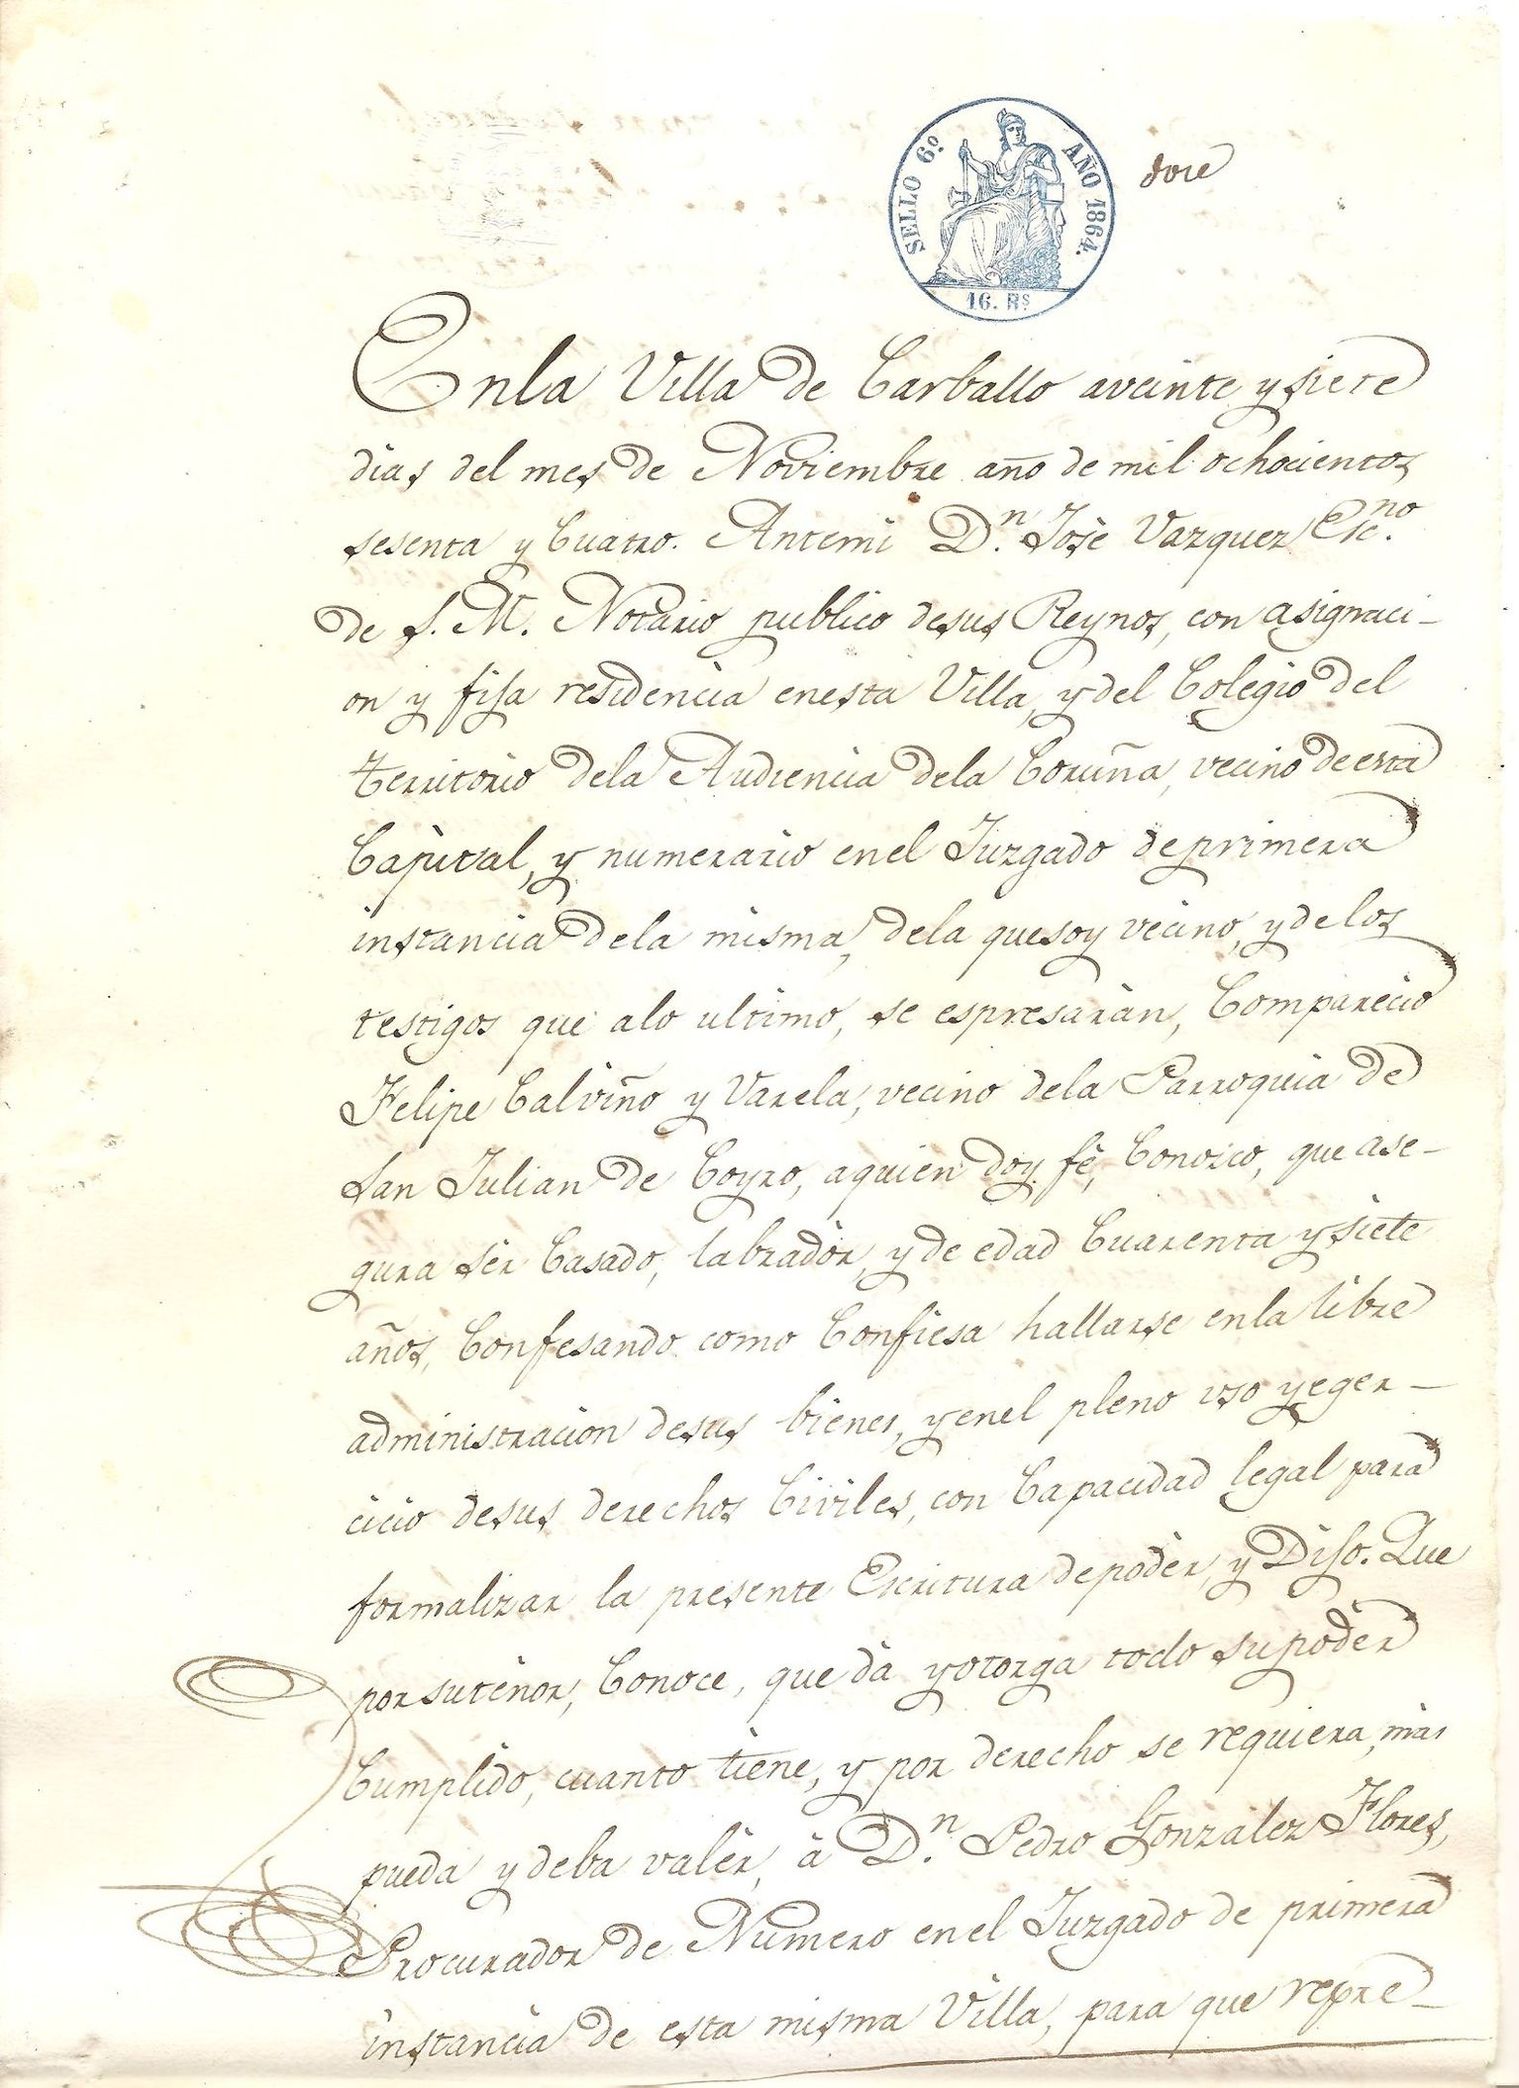 SELLO 6º AÑO 1864.
16. Rs
doce
Enla Villa de Carballo aveinte y siete
dias del mes de Noviembre año de mil ochocientos
sesenta y Cuatro. Antemi D.n Josè Vazquez Esc.no
de S. M. Notario publico desus Reynos, con asignaci-
on y fija residencia enesta Villa, y del Colegio del
territorio dela Audiencia dela Coruña, vecino de esta
Capital, y numerario enel Juzgado de primera
instancia dela misma, dela quesoy vecino, y de los
testigos que alo ultimo, se espresaràn, Compareció
Felipe Calviño y Varela, vecino dela Parroquia de
San Julian de Coyro, aquien doy fè, Conozco, que ase-
gura sèr Casado, labradòr, y de edad Cuarenta y siete
años, Confesando como Confiesa hallarse enla libre
administracion desus bienes, y enel pleno uso y eger-
cicio desus derechos Civiles, con Capacidad legal para
formalizar la presente Escritura depodèr, y Dijo. Que
porsutènor, Conoce, que dà yotorga todo supodèr
Cumplido, cuanto tiene, y por derecho se requiera, màs
pueda y deba valèr, à D.n Pedro Gonzalez Flores,
Procurador de Numero en el Juzgado de primera
instancia de esta misma Villa, para que repre-